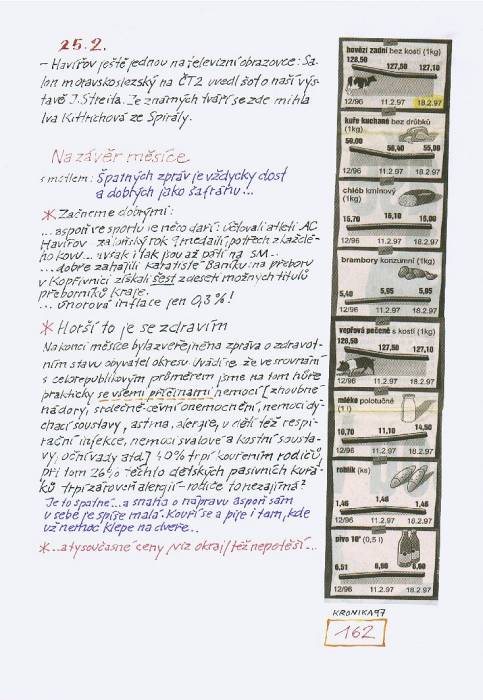 25.2.
– Havířov ještě jednou na televizní obrazovce: Sa-
lon moravskoslezský na ČT2 uvedl šot o naší výs-
tavě J. Streita. Ze známých tváří se zde mihla
Iva Kittrichová ze Spirály.
Na závěr měsíce
s mottem: Špatných zpráv je vždycky dost
a dobrých jako šafránu...
* Začneme dobrými:
...aspoň ve sportu je něco daří: Účtovali atleti AC
Havířov za loňský rok 9 medailí, po třech z každé-
ho kovu... a však i tak jsou až pátí na SM..
...dobře zahájili karatisté Baníku: na přeboru
v Kopřivnici získali šest z deseti možných titulů
přeborníků kraje.
... únorová inflace jen 0,3%!
* Horší to je se zdravím
Na konci měsíce byla zveřejněna zpráva o zdravot-
ním stavu obyvatel okresu. Uvádí se, že ve srovnání
s celorepublikovým průměrem jsme na tom hůře
prakticky se všemi příčinami nemocí [zhoubné
nádory, srdečně-cévní onemocnění, nemoci dý-
chací soustavy, astma, alergie, u dětí též respi-
rační infekce, nemoci svalové a kostní sousta-
vy, oční vady atd.] 40% trpí kouřením rodičů,
při tom 26% těchto dětských pasivních kuřá-
ků trpí zároveň alergií - rodiče to nezajímá?
Je to špatné...a snaha o nápravu aspoň sám
v sebe je spíše malá. Kouří se a pije i tam, kde
už nemoc klepe na dveře..
*...a ty současné ceny /viz okraj/ též nepotěší...
hovězí zadní bez kosti (1kg)
128,50 127,50 127,10
12/96 11.2.97 18.2.97
kuře kuchané bez drůbků
(1kg)
56,40 55,00
12/96 11.2.97 18.2.97
chléb kmínový
(1kg)
15,70 16,10 16,00
12/96 11.2.97 18.2.97
brambory konzumní (1kg)
5,40 5,95 5,95
12/96 11.2.97 18.2.97
vepřová pečeně s kostí (1kg)
128,50 127,50 127,10
12/96 11.2.97 18.2.97
mléko polotučné
(1 l)
10,70 11,10 14,50
12/96 11.2.97 18.2.97
rohlík (ks)
1,46 1,46 1,46
12/96 11.2.97 18.2.97
pivo 10° (0,5 l)
6,51 6,60 6,60
12/96 11.2.97 18.2.97
KRONIKA 97
162